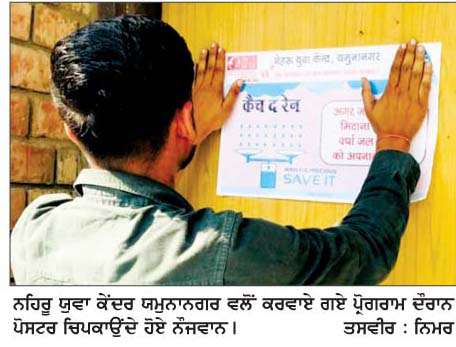 नेहरू युवा केन्द्र, यमुनानगर
कैच द रेन
अगर
मिटाना
वर्षा जल
को अपना
WATER IS PRECIOUS
SAVE IT
ਨਹਿਰੂ ਯੁਵਾ ਕੇਂਦਰ ਯਮੁਨਾਨਗਰ ਵਲੋਂ ਕਰਵਾਏ ਗਏ ਪ੍ਰੋਗਰਾਮ ਦੌਰਾਨ
ਪੋਸਟਰ ਚਿਪਕਾਉਂਦੇ ਹੋਏ ਨੌਜਵਾਨ। ਤਸਵੀਰ : ਨਿਮਰ